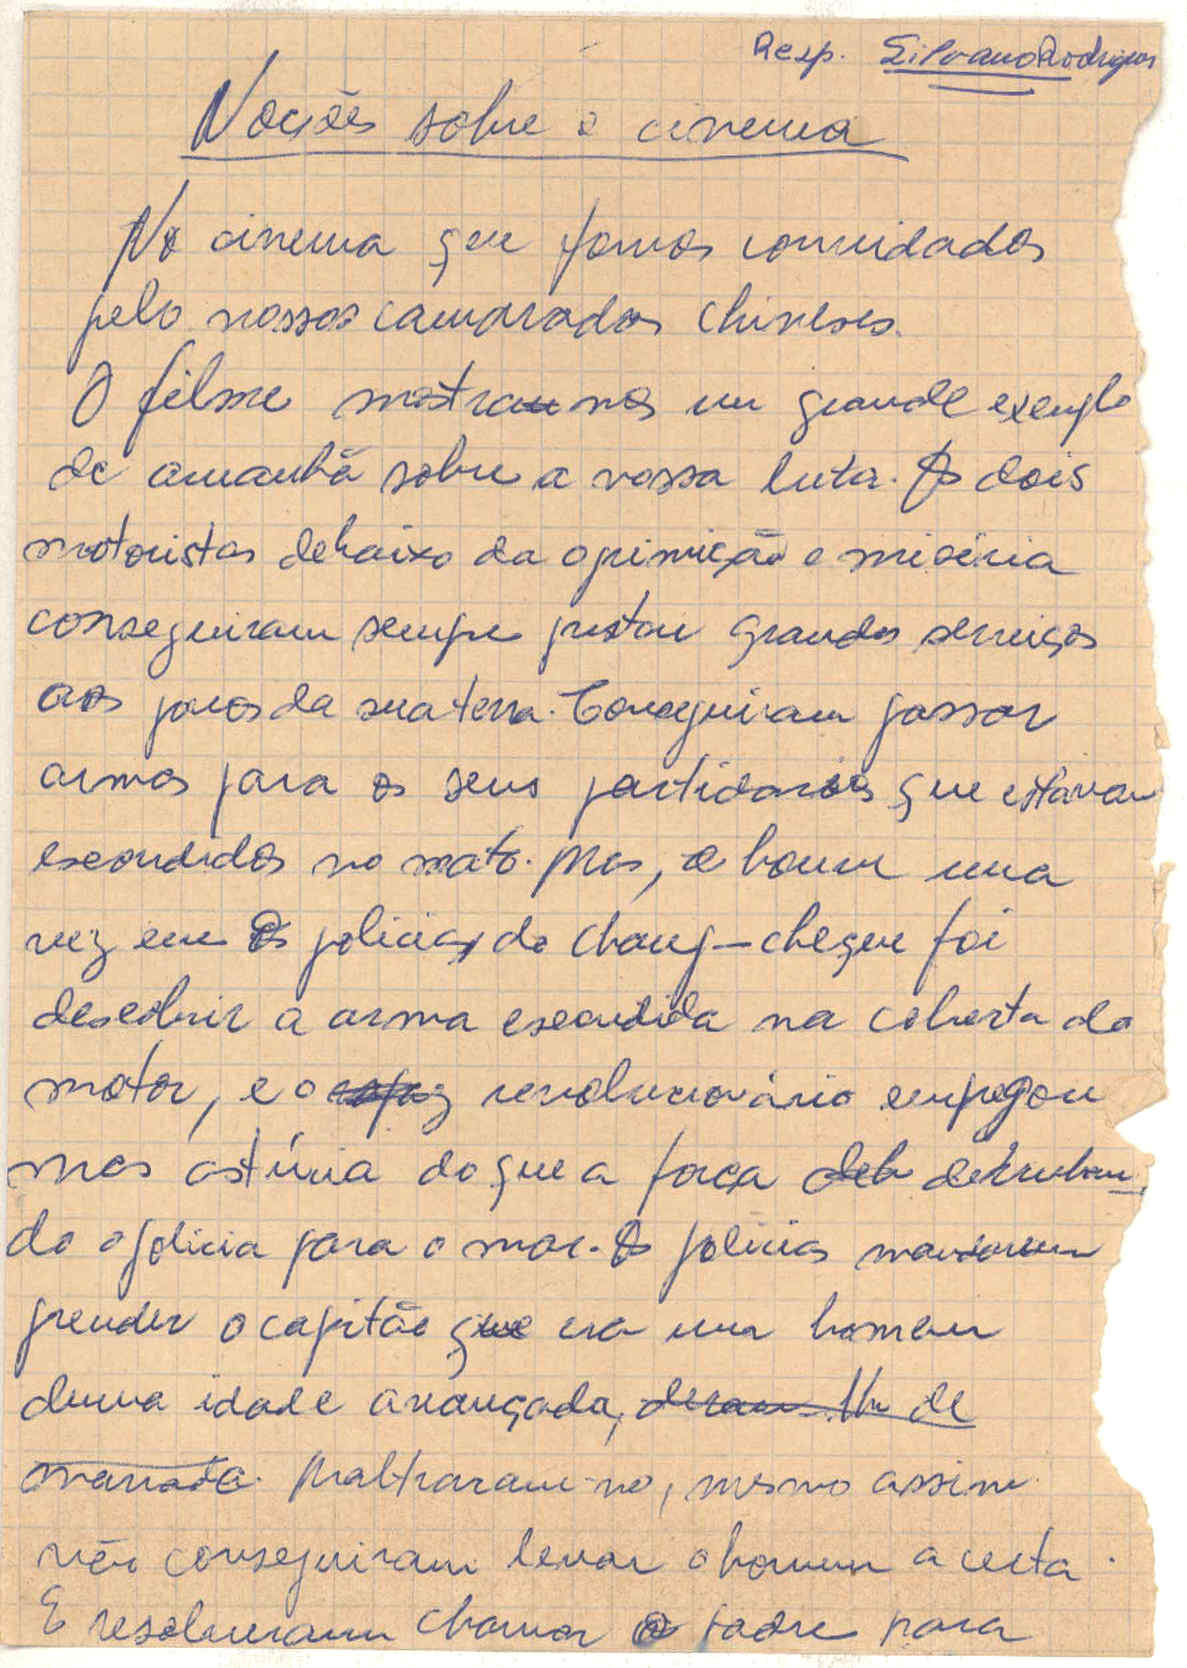 Resp. Silvano Rodrigues
Noções sobre o cinema
No cinema que fomos convidados
pelo nossos camaradas chineses.
O filme mostrau nos um grande exemplo
de amanhã sobre a nossa luta. Os dois
motoristas debaixo da oprimição e miséria
conseguiram sempre prestar grandes serviços
aos povos da sua terra. Conseguiram passar
armas para os seus partidarios que estavam
escondidos no mato. Mas, houve uma
vez em os policias do Chang-cheque foi
descobrir a arma escondida na coberta do
motor, e o revolucionário empregou
mas astúcia do que a força derruban-
do o policia para o mar. Os policias mandaram
prender o capitão que era um homem
duma idade avançada, deram Um de
marrada. Maltrararam-no, mesmo assim
não conseguiram levar o homem a certa.
E resolveram chamar o padre para